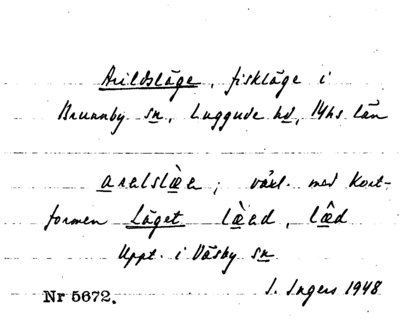 Arildsläge, fiskläge i
Brunnby sn, Luggude hd, Mhs län
arelslæ̀e; växl. med Kort-
formen Läget læ̀ed, læ̂d
Uppt. i Väsby sn
I. Ingers 1948
Nr 5672.